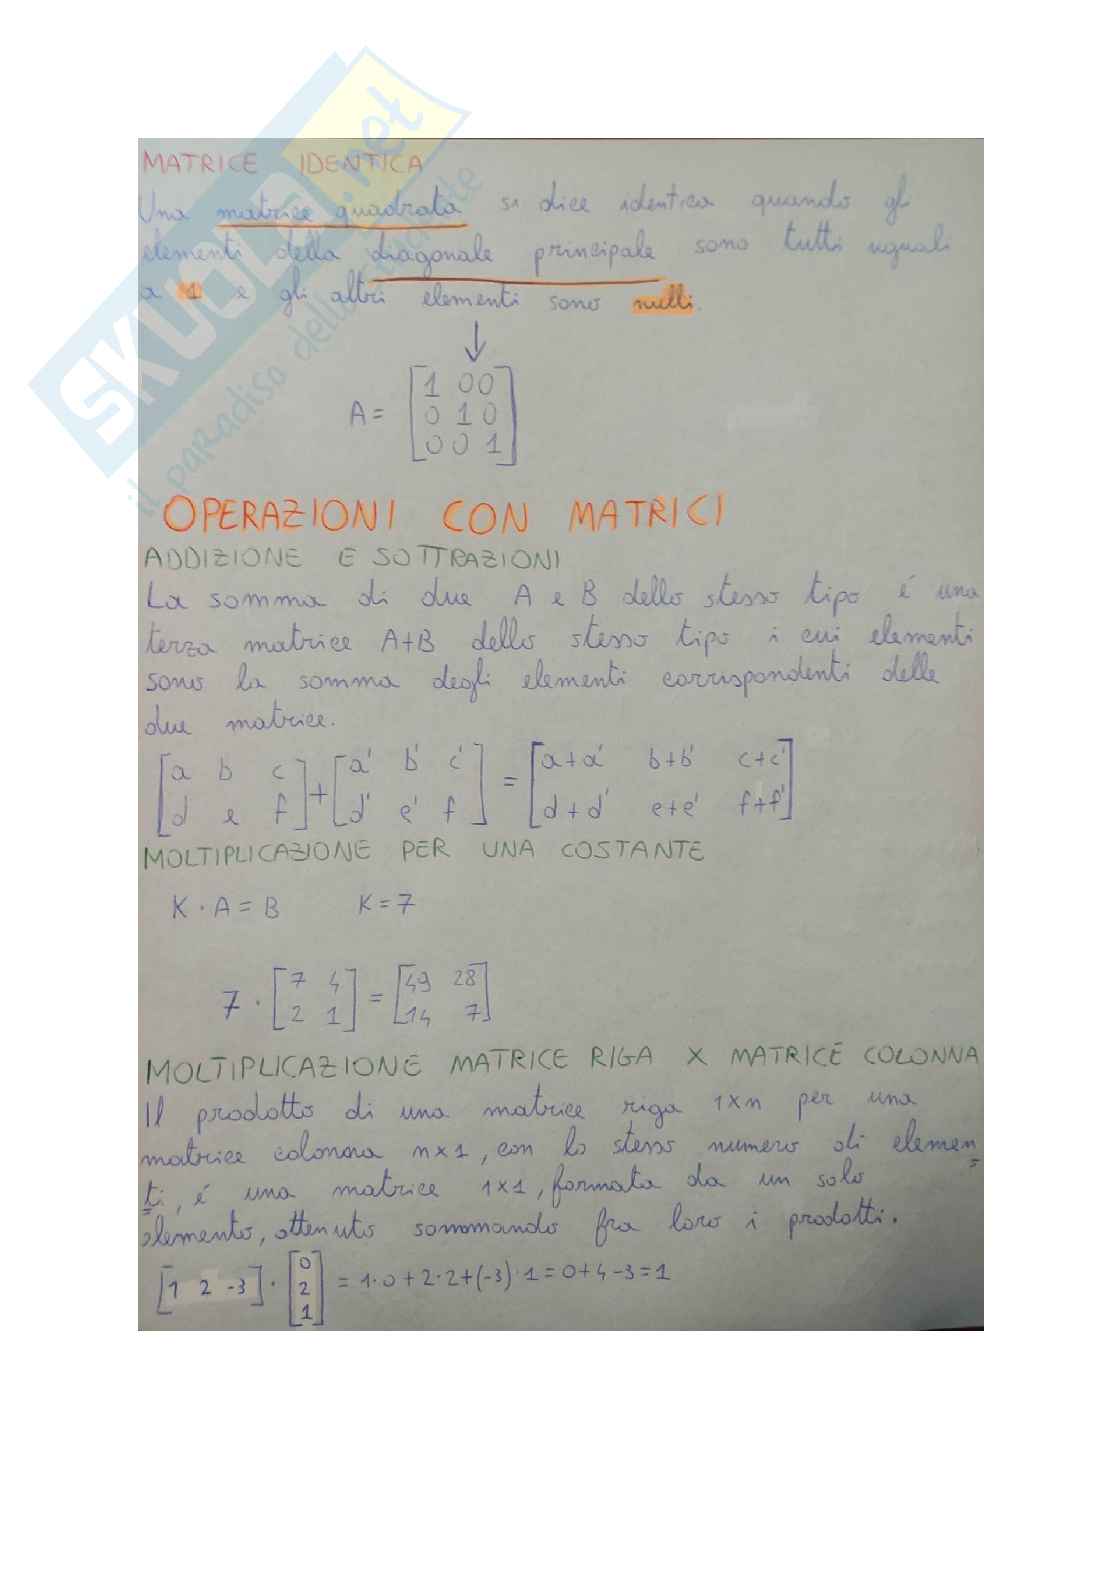 SKUOLA.net
il paradiso dello studente
MATRICE IDENTICA
Una matrice quadrata si dice identica quando gli
elementi della diagonale principale sono tutti uguali
a 1 e gli altri elementi sono nulli.
A = [1 0 0
0 1 0
0 0 1]
OPERAZIONI CON MATRICI
ADDIZIONE E SOTTRAZIONI
La somma di due A e B dello stesso tipo é una
terza matrice A+B dello stesso tipo i cui elementi
sono la somma degli elementi corrispondenti delle
due matrice.
[a b c] + [a' b' c'] = [a+a' b+b' c+c']
[d e f] [d' e' f] [d+d' e+e' f+f']
MOLTIPLICAZIONE PER UNA COSTANTE
K · A = B K = 7
7 · [7 4] = [49 28]
[2 1] [14 7]
MOLTIPLICAZIONE MATRICE RIGA X MATRICE COLONNA
Il prodotto di una matrice riga 1×n per una
matrice colonna n×1, con lo stesso numero di elemen=
=ti, é una matrice 1×1, formata da un solo
elemento, ottenuto sommando fra loro i prodotti.
[1 2 -3] · [0
2
1] = 1·0+2·2+(-3)·1=0+4-3=1